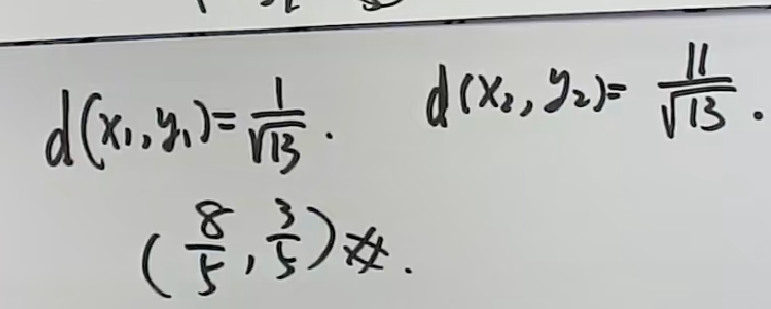 d(x₁,y₁)=1/√13. d(x₂,y₂)=11/√13.
(8/5,3/5)※.